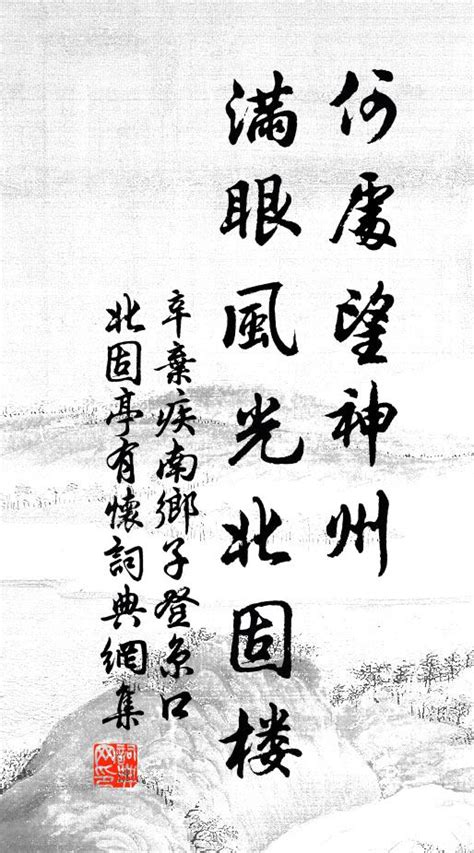 何處望神州
滿眼風光北固楼
辛棄疾南鄉子登京口
北固亭有懷詞典網集